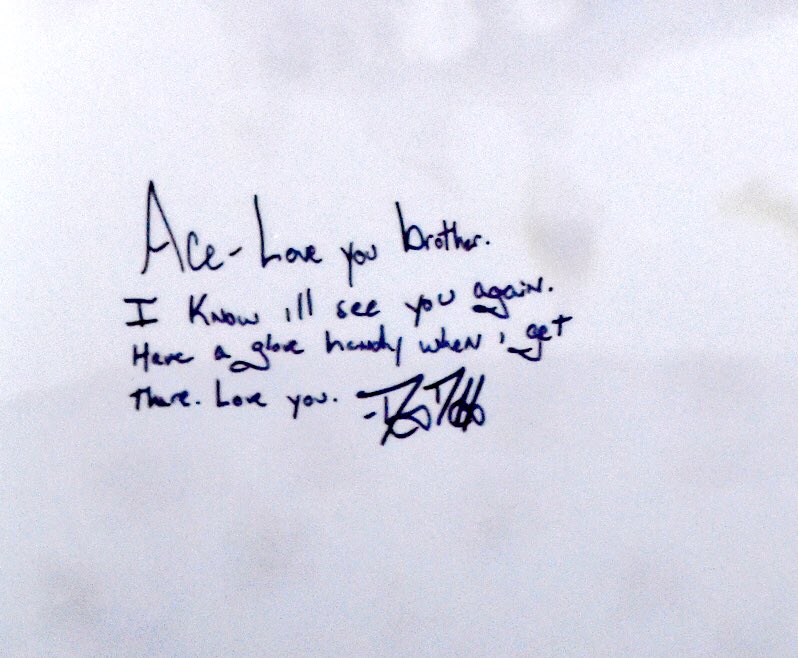 Ace - Love you brother.
I know ill see you again.
Have a glove handy when i get
There. Love you.